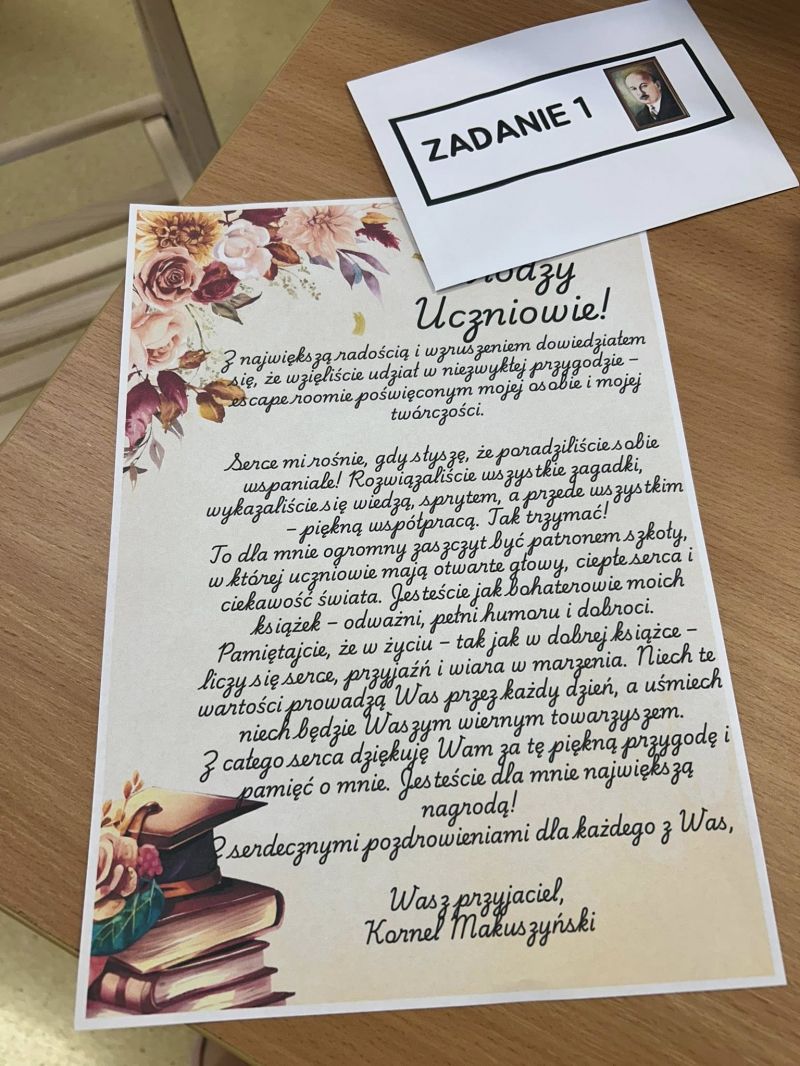 ZADANIE 1
Uczniowie!
Z największą radością i wzruszeniem dowiedziałem
się, że wzięliście udział w niezwykłej przygodzie –
escape roomie poświęconym mojej osobie i mojej
twórczości.
Serce mi rośnie, gdy słyszę, że poradziliście sobie
wspaniale! Rozwiązaliście wszystkie zagadki,
wykazaliście się wiedzą, sprytem, a przede wszystkim
– piękną współpracą. Tak trzymać!
To dla mnie ogromny zaszczyt być patronem szkoły,
w której uczniowie mają otwarte głowy, ciepłe serca i
ciekawość świata. Jesteście jak bohaterowie moich
książek – odważni, pełni humoru i dobroci.
Pamiętajcie, że w życiu – tak jak w dobrej książce –
liczy się serce, przyjaźń i wiara w marzenia. Niech te
wartości prowadzą Was przez każdy dzień, a uśmiech
niech będzie Waszym wiernym towarzyszem.
Z całego serca dziękuję Wam za tę piękną przygodę i
pamięć o mnie. Jesteście dla mnie największą
nagrodą!
Z serdecznymi pozdrowieniami dla każdego z Was,
Wasz przyjaciel,
Kornel Makuszyński